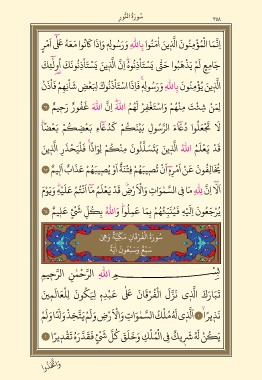 سُورَةُ النُّورِ ٣٥٨
اِنَّمَا الْمُؤْمِنُونَ الَّذ۪ينَ اٰمَنُوا بِاللّٰهِ وَرَسُولِه۪ وَاِذَا كَانُوا مَعَهُ عَلٰٓى اَمْرٍ
جَامِعٍ لَمْ يَذْهَبُوا حَتّٰى يَسْتَأْذِنُوهُۜ اِنَّ الَّذ۪ينَ يَسْتَأْذِنُونَكَ اُو۬لٰٓئِكَ
الَّذ۪ينَ يُؤْمِنُونَ بِاللّٰهِ وَرَسُولِه۪ۚ فَاِذَا اسْتَأْذَنُوكَ لِبَعْضِ شَأْنِهِمْ فَأْذَنْ
لِمَنْ شِئْتَ مِنْهُمْ وَاسْتَغْفِرْ لَهُمُ اللّٰهَۜ اِنَّ اللّٰهَ غَفُورٌ رَح۪يمٌ ﴿٦٢﴾
لَا تَجْعَلُوا دُعَٓاءَ الرَّسُولِ بَيْنَكُمْ كَدُعَٓاءِ بَعْضِكُمْ بَعْضًاۜ
قَدْ يَعْلَمُ اللّٰهُ الَّذ۪ينَ يَتَسَلَّلُونَ مِنْكُمْ لِوَاذًاۚ فَلْيَحْذَرِ الَّذ۪ينَ
يُخَالِفُونَ عَنْ اَمْرِه۪ٓ اَنْ تُص۪يبَهُمْ فِتْنَةٌ اَوْ يُص۪يبَهُمْ عَذَابٌ اَل۪يمٌ ﴿٦٣﴾
اَلَٓا اِنَّ لِلّٰهِ مَا فِي السَّمٰوَاتِ وَالْاَرْضِۜ قَدْ يَعْلَمُ مَٓا اَنْتُمْ عَلَيْهِۜ وَيَوْمَ
يُرْجَعُونَ اِلَيْهِ فَيُنَبِّئُهُمْ بِمَا عَمِلُواۜ وَاللّٰهُ بِكُلِّ شَيْءٍ عَل۪يمٌ ﴿٦٤﴾
سُورَةُ الْفُرْقَانِ مَكِّيَّةٌ وَهِيَ
سَبْعٌ وَسَبْعُونَ اٰيَةً
بِسْمِ اللّٰهِ الرَّحْمٰنِ الرَّح۪يمِ
تَبَارَكَ الَّذ۪ي نَزَّلَ الْفُرْقَانَ عَلٰى عَبْدِه۪ لِيَكُونَ لِلْعَالَم۪ينَ
نَذ۪يرًاۙ ﴿١﴾ اَلَّذ۪ي لَهُ مُلْكُ السَّمٰوَاتِ وَالْاَرْضِ وَلَمْ يَتَّخِذْ وَلَدًا وَلَمْ
يَكُنْ لَهُ شَر۪يكٌ فِي الْمُلْكِ وَخَلَقَ كُلَّ شَيْءٍ فَقَدَّرَهُ تَقْد۪يرًا ﴿٢﴾
وَاتَّخَذُوا